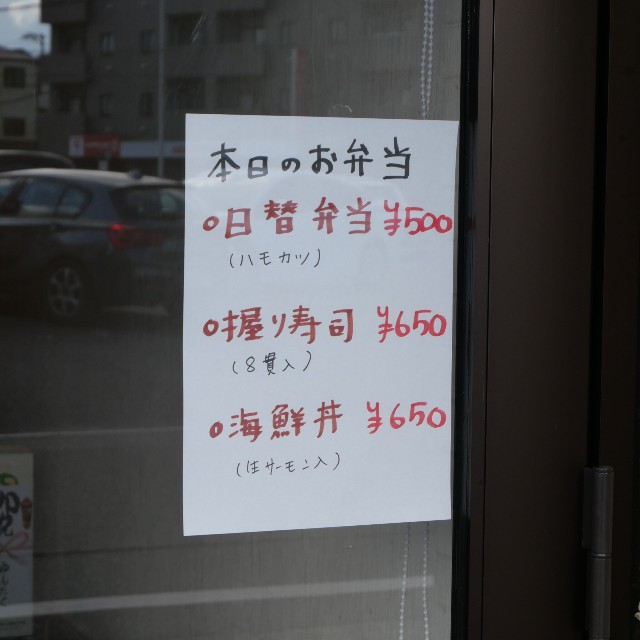 本日のお弁当
○日替弁当 ¥500
(ハモカツ)
○握り寿司 ¥650
(8貫入)
○海鮮丼 ¥650
(生サーモン入)